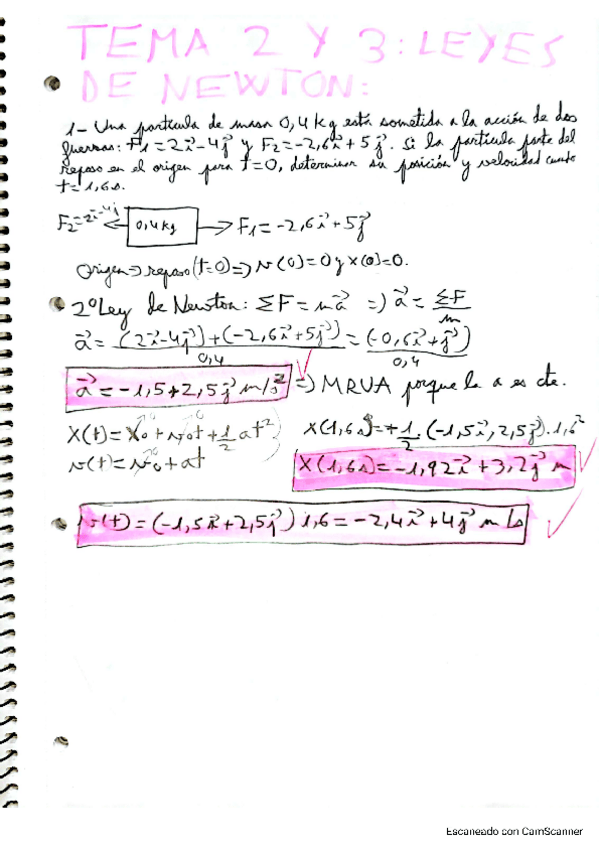 TEMA 2 Y 3: LEYES
DE NEWTON:
1- Una partícula de masa 0,4 kg está sometida a la acción de dos
fuerzas: F1=2i⃗-4j⃗ y F2=-2,6i⃗+5j⃗. Si la partícula parte del
reposo en el origen para t=0, determinar su posición y velocidad cuando
t=1,6s.
F2=2i⃗-4j⃗ 0,4kg F1=-2,6i⃗+5j⃗
Origen⇒reposo(t=0)⇒v(0)=0 y x(0)=0.
2ºLey de Newton: ΣF=ma⃗ ⇒ a⃗=ΣF/m
a⃗=((2i⃗-4j⃗)+(-2,6i⃗+5j⃗))/0,4=(-0,6i⃗+j⃗)/0,4
a⃗=-1,5+2,5j⃗ m/s² ⇒ MRVA porque la a es cte.
x(t)=x0+v0t+1/2at² x(1,6s)=+1/2·(-1,5i⃗,2,5j⃗)·1,6²
v(t)=v0+at x(1,6s)=-1,92i⃗+3,2j⃗ m
v(t)=(-1,5i⃗+2,5j⃗)1,6=-2,4i⃗+4j⃗ m/s
Escaneado con CamScanner